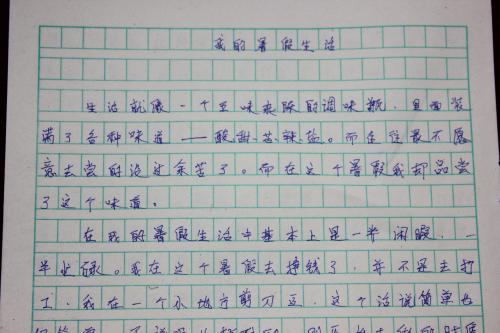 我的暑假生活
生活就像一个五味杂陈的调味瓶，里面装
满了各种味道——酸、甜、苦、辣、盐。而往往最不愿
意去尝的没过余苦了。而在这个暑假我却品尝
了这个味道。
在我的暑假生活中基本上是一半闲暇，一
半忙碌。我在这个暑假去挣钱了，并不是去打
工，我在一个小地方剪刀豆，这个活说简单也